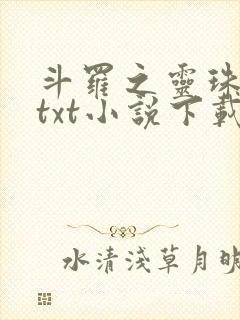 斗羅之靈珠
txt小說下載
水清淺草月明